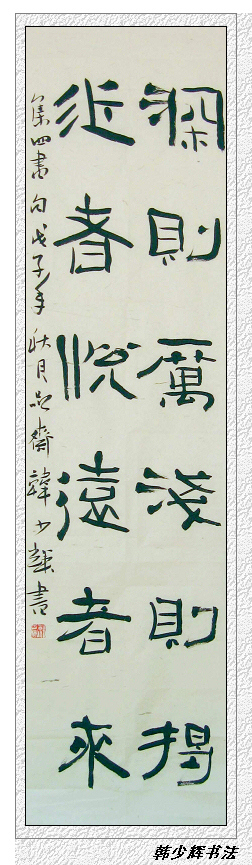 深則厲淺則揭
近者悅遠者來
集四書句戊子年秋月品齋韓少輝書
韩少辉书法